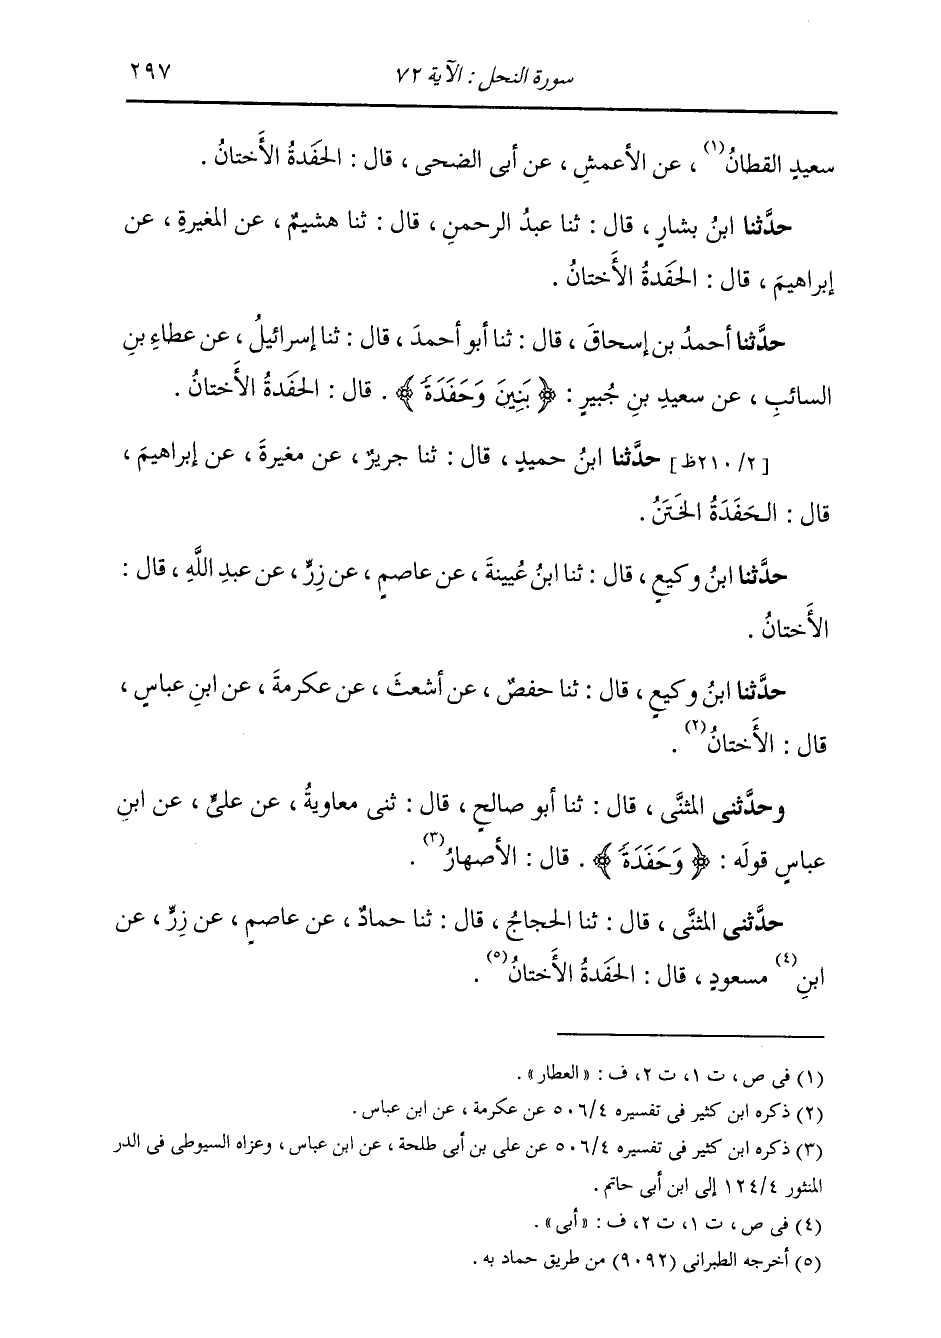 سورة النحل : الآية ٧٢
٢٩٧
سعيدٍ القطانُ(١) ، عن الأعمشِ ، عن أبى الضحى ، قال : الحَفَدةُ الأَختانُ .
حدَّثنا ابنُ بشارٍ ، قال : ثنا عبدُ الرحمنِ ، قال : ثنا هشيمٌ ، عن المغيرةِ ، عن
إبراهيمَ ، قال : الحَفَدةُ الأَختانُ .
حدَّثنا أحمدُ بن إسحاقَ ، قال : ثنا أبو أحمدَ ، قال : ثنا إسرائيلُ ، عن عطاءِ بنِ
السائبِ ، عن سعيدِ بنِ جُبيرٍ : ﴿ بَنِينَ وَحَفَدَةً ﴾ . قال : الحَفَدةُ الأَختانُ .
[٢/ ٢١٠ظ] حدَّثنا ابنُ حميدٍ ، قال : ثنا جريرٌ ، عن مغيرةَ ، عن إبراهيمَ ،
قال : الحَفَدَةُ الخَتَنُ .
حدَّثنا ابنُ وكيعٍ ، قال : ثنا ابنُ عُيينةَ ، عن عاصمٍ ، عن زِرٍّ ، عن عبدِ اللَّهِ ، قال :
الأَختانُ .
حدَّثنا ابنُ وكيعٍ ، قال : ثنا حفصٌ ، عن أشعثَ ، عن عكرمةَ ، عن ابنِ عباسٍ ،
قال : الأَختانُ(٢) .
وحدَّثنى المثنَّى ، قال : ثنا أبو صالحٍ ، قال : ثنى معاويةُ ، عن علىٍّ ، عن ابنِ
عباسٍ قولَه : ﴿ وَحَفَدَةً ﴾ . قال : الأصهارُ(٣) .
حدَّثنى المثنَّى ، قال : ثنا الحجاجُ ، قال : ثنا حمادٌ ، عن عاصمٍ ، عن زِرٍّ ، عن
ابنِ(٤) مسعودٍ ، قال : الحَفَدةُ الأَختانُ(٥) .
(١) فى ص ، ت ١، ت ٢، ف : « العطار » .
(٢) ذكره ابن كثير فى تفسيره ٥٠٦/٤ عن عكرمة ، عن ابن عباس .
(٣) ذكره ابن كثير فى تفسيره ٥٠٦/٤ عن على بن أبى طلحة ، عن ابن عباس ، وعزاه السيوطى فى الدر
المنثور ١٢٤/٤ إلى ابن أبى حاتم .
(٤) فى ص ، ت ١، ت ٢، ف : « أبى » .
(٥) أخرجه الطبرانى (٩٠٩٢) من طريق حماد به .